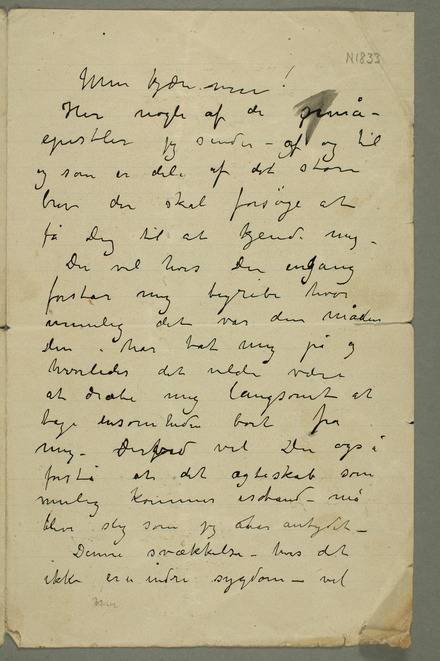 N1833
Min kjære ven!
Her nogle af de små-
epistler jeg sender af og til
og som er dele af det store
brev der skal forsøge at
få Dig til at kjende mig.
Du vil hvis Du engang
forstår mig begribe hvor
umulig det var den måden
Du har bat mig på og
hvorledes det vilde være
at dræbe mig langsomt at
tage ensomheden bort fra
mig. Derfor vil Du også
forstå at det ægteskab som
mulig kommer istand må
blive slig som jeg antydet
Denne svækkelse hvis det
ikke er en indre sygdom vil